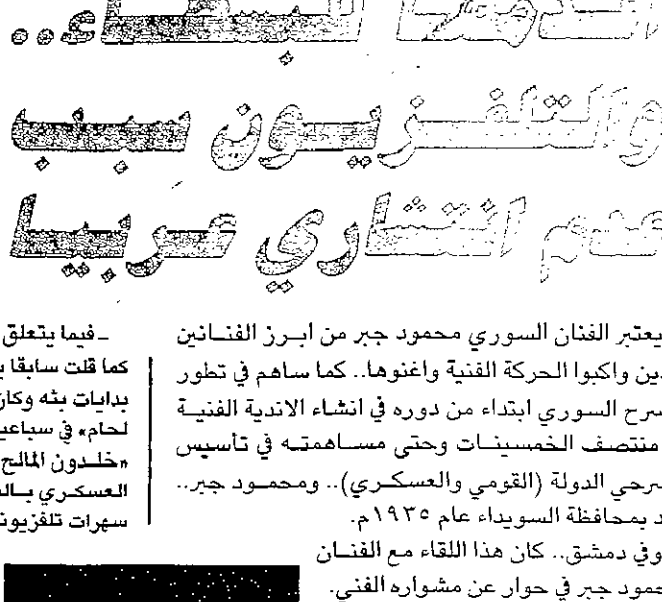 البسطاء..
والتلفزيون سبب
عدم انتشاري عربيا
يعتبر الفنان السوري محمود جبر من ابرز الفنانين
ذين واكبوا الحركة الفنية واغنوها.. كما ساهم في تطور
سرح السوري ابتداء من دوره في انشاء الاندية الفنية
منتصف الخمسينات وحتى مساهمته في تأسيس
سرحي الدولة (القومي والعسكري).. ومحمود جبر..
د بمحافظة السويداء عام ١٩٣٥م.
وفي دمشق.. كان هذا اللقاء مع الفنان
حمود جبر في حوار عن مشواره الفني.
ـ فيما يتعلق
كما قلت سابقا ب
بدايات بثه وكان
لحام» في سباعي
«خلدون المالح
العسكري بال
سهرات تلفزيون